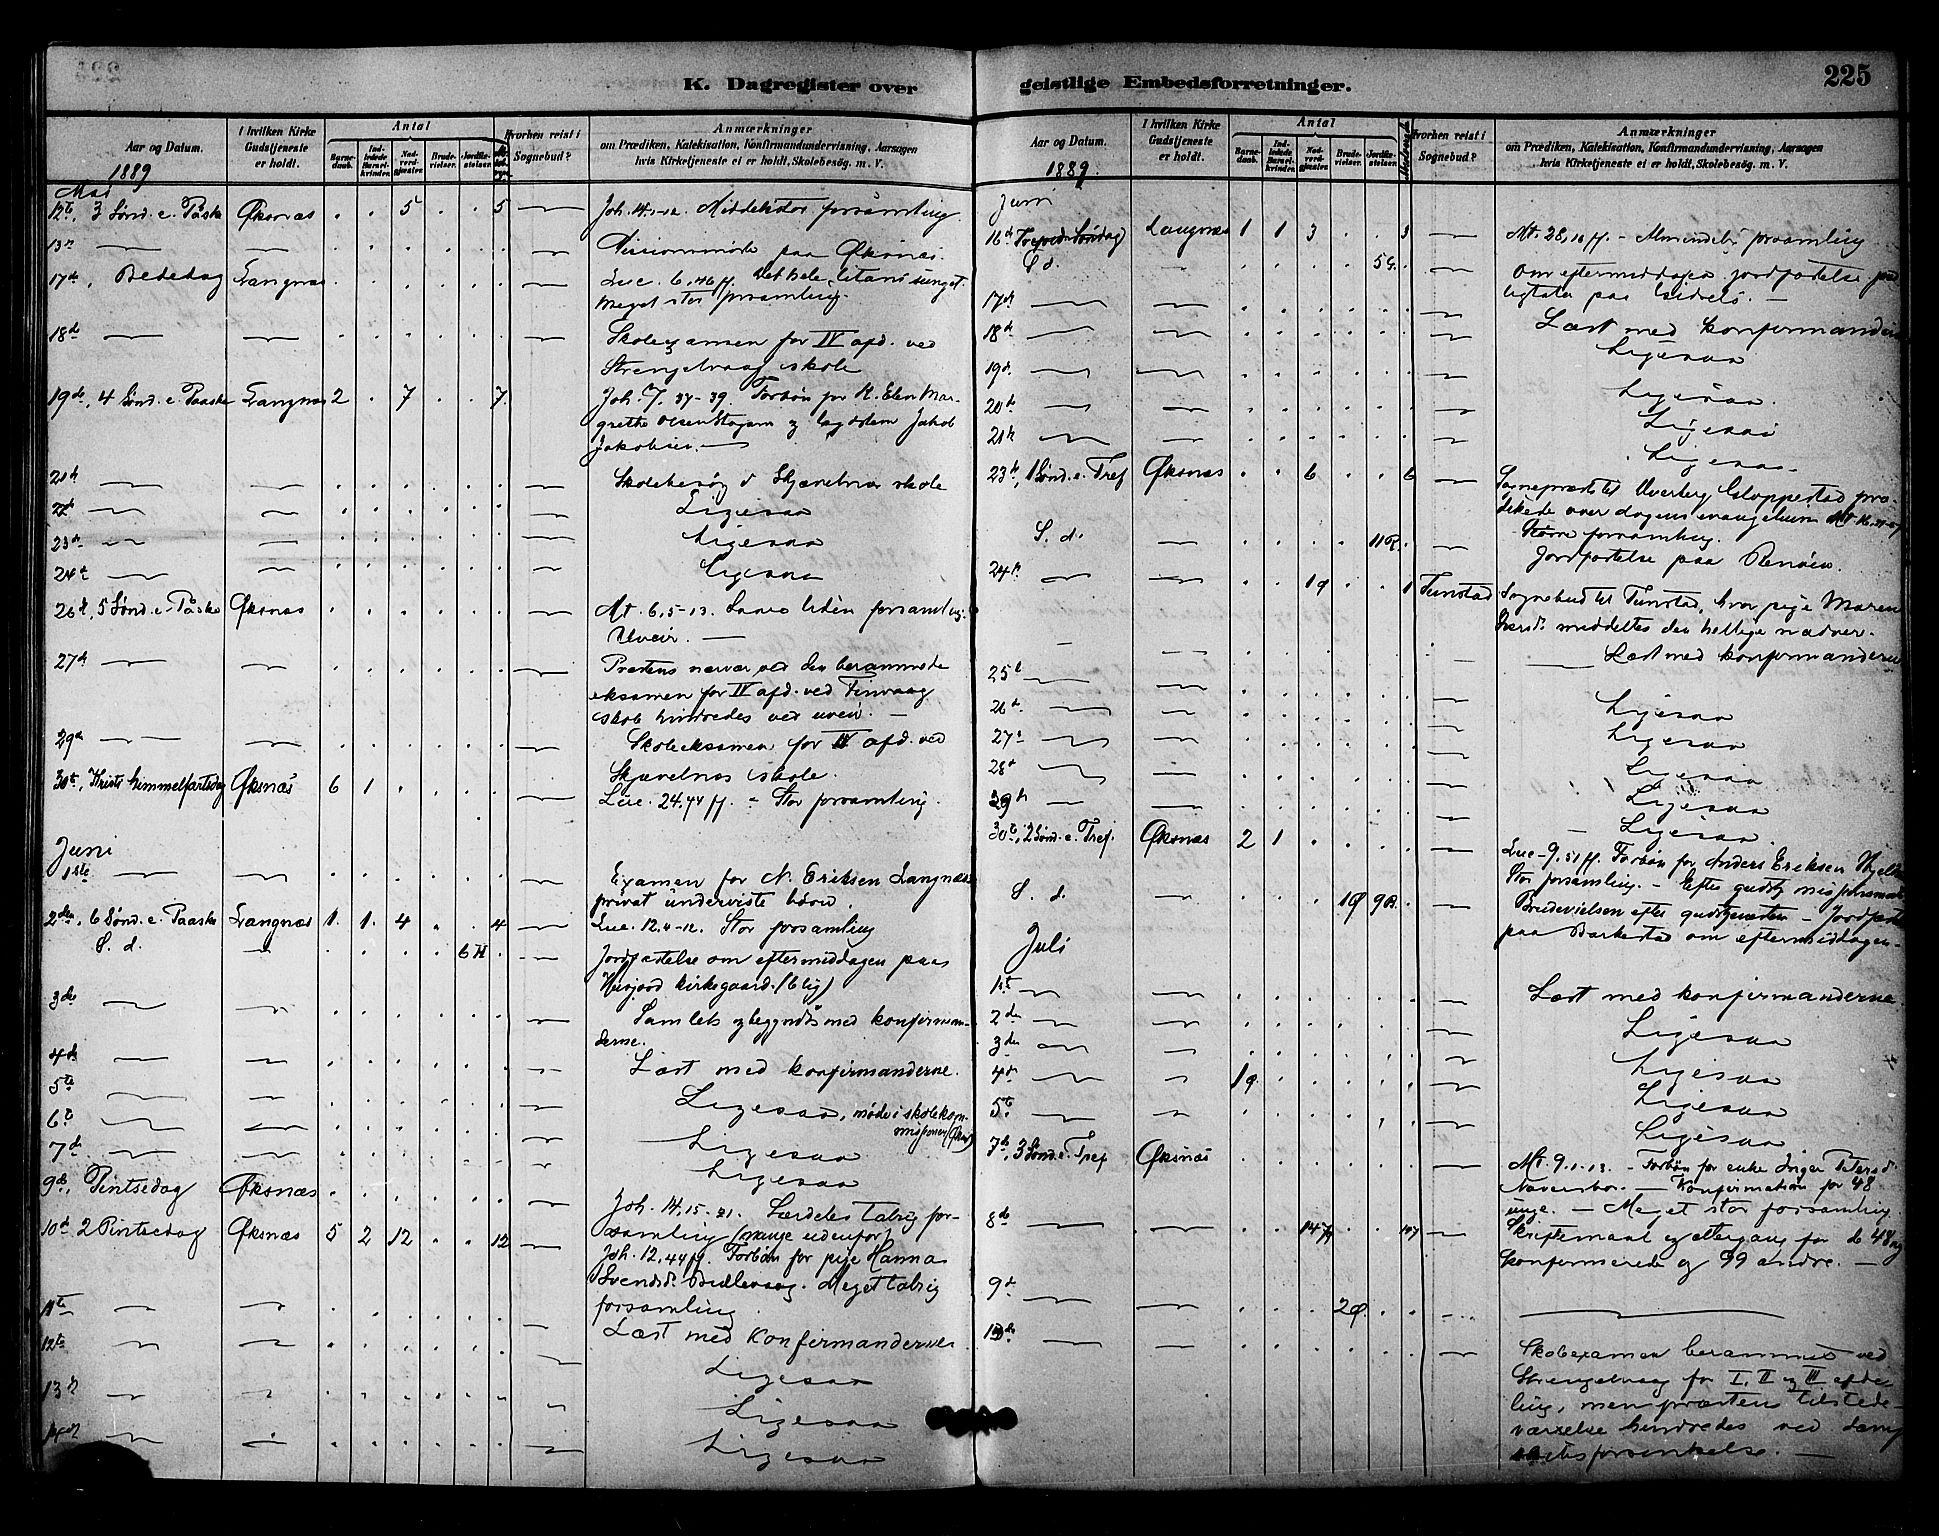 K. Dagregister over
Aar og Datum.
1889
I hvilken Kirke Gudstjeneste er holdt.
Antal
Barnedaab.
Indledede Barselkvinder.
Nadverdgjæster.
Brudevielser.
Jordfæstelser.
Hvorhen reist i Sognebud?
Anmærkninger
om Prædiken, Katekisation, Konfirmandundervisning, Aarsagen
hvis Kirketjeneste ei er holdt, Skolebesøg. m. V.
Mai
12te, 3 Sønd. e. Påske Øksnæs . . 5 . . 5 Joh. 14, 1-12. Middelstor forsamling
13de Missionsmøde paa Øksnæs.
17de, Bededag Langnæs Luc. 6, 46 ff. Det hele litani sunget.
Meget stor forsamling.
18de Skoleexamen for IV afd. ved
Strengelvaag skole
19de, 4 Sønd. e. Paaske Langnæs 2 . 7 . . 7. Joh. 7, 37-39. Forbøn for K. Elen Mar-
grethe Olsen Stagen og Jakob
Jakobsen.
21de Skolebesøg i Skjævelnes skole
22de Ligesaa
23de Ligesaa
24de Ligesaa
26de, 5 Sønd. e. Påske Øksnæs Mt. 6, 5-13. Saare liden forsamling.
Uveir.
27de Præstens nærvær ved den berammede
eksamen for IV afd. ved Finvaag
skole hindredes ved uveir.
29de Skoleeksamen for IV afd. ved
Skjævelnes skole.
30te, Kristi himmelfartsdag Øksnæs 6 1 Luc. 24, 44 ff. - Stor forsamling.
Juni
1ste Examen for N. Eriksen Langnæs
privat underviste børn.
2den, 6 Sønd. e. Paaske Langnæs 1. 1. 4 . . 4 Luc. 12, 4-12. Stor forsamling
S. d. 6 H Jordfæstelse om eftermiddagen paa
kirkegaard. (6 lig)
3die Samlets og begyndtes med konfirman-
derne.
4de Læst med konfirmanderne.
5te Ligesaa, møde i skolekom-
missionen (Øksn)
6te Ligesaa
7de Ligesaa
9de, Pintsedag Øksnæs Joh. 14, 15-21. Særdeles talrig for-
samling (mange udenfor)
10de 2 Pintsedag Øksnæs 5 2 12 . . 12 Joh. 12, 44 ff. Forbøn for pige Hanna
Svendsd. . Meget talrig
forsamling.
11te Læst med Konfirmanderne
12te Ligesaa
13de Ligesaa
14de Ligesaa
geistlige Embedsforretninger.
225
Aar og Datum.
1889.
I hvilken Kirke Gudstjeneste er holdt.
Antal
Barnedaab.
Indledede Barselkvinder.
Nadverdgjæster.
Brudevielser.
Jordfæstelser.
Hvorhen reist i Sognebud?
Anmærkninger
om Prædiken, Katekisation, Konfirmandundervisning, Aarsagen
hvis Kirketjeneste ei er holdt, Skolebesøg. m. V.
Juni
16de Trefold. Søndag Langnæs 1 1 3 . . 3 Mt. 28, 16 ff. - Almindelig forsamling
S d. 5 G. Om eftermiddagen jordfæstelse
paa .
17de Læst med konfirmanderne
18de Ligesaa
19de Ligesaa.
20de Ligesaa
21de Ligesaa
23de, 1 Sønd. e. Tref Øksnæs . . 6 . . 6 Sognepræst til Hverberg Gloppestad præ-
dikede over dagens evangelium Mt. 16,
Større forsamling.
S. d. 11 R. Jordfæstelse paa Renøen.
24de 1 q 1 Tunstad Sognebud til Tunstad, hvor pige Maren
meddeltes den hellige nadver.
Læst med konfirmanderne
25de Ligesaa
26de Ligesaa
27de Ligesaa
28de Ligesaa
29de Ligesaa
30te, 2 Sønd. e. Tref. Øksnæs 2 1 Luc. 9, 51 ff. Forbøn for Anders Eriksen
Stor forsamling. - Efter gudstj.
S. d. 1 Ø 9 B. Brudevielsen efter gudstjenesten - Jordfæstelse
paa Barkestad om eftermiddagen -
Juli
1ste Læst med konfirmanderne
2den Ligesaa
3die Ligesaa
4de 1 q. Ligesaa
5te Ligesaa
7de, 3 Sønd. e. Tref Øksnæs Mt. 9, 1-13. - Forbøn for enke Inger Petersd.
. - Konfirmation for 48
unge. - Meget stor forsamling.
8de 147 147 Skriftemaal og altergang for de 48 ny
konfirmerede og 99 andre.
9de 2 Ø.
Skoleexamen berammet ved
Strengelvaag for I, II og III afde-
ling, men præstens tilstede-
værelse hindredes ved damp-
skibsforsinkelse.